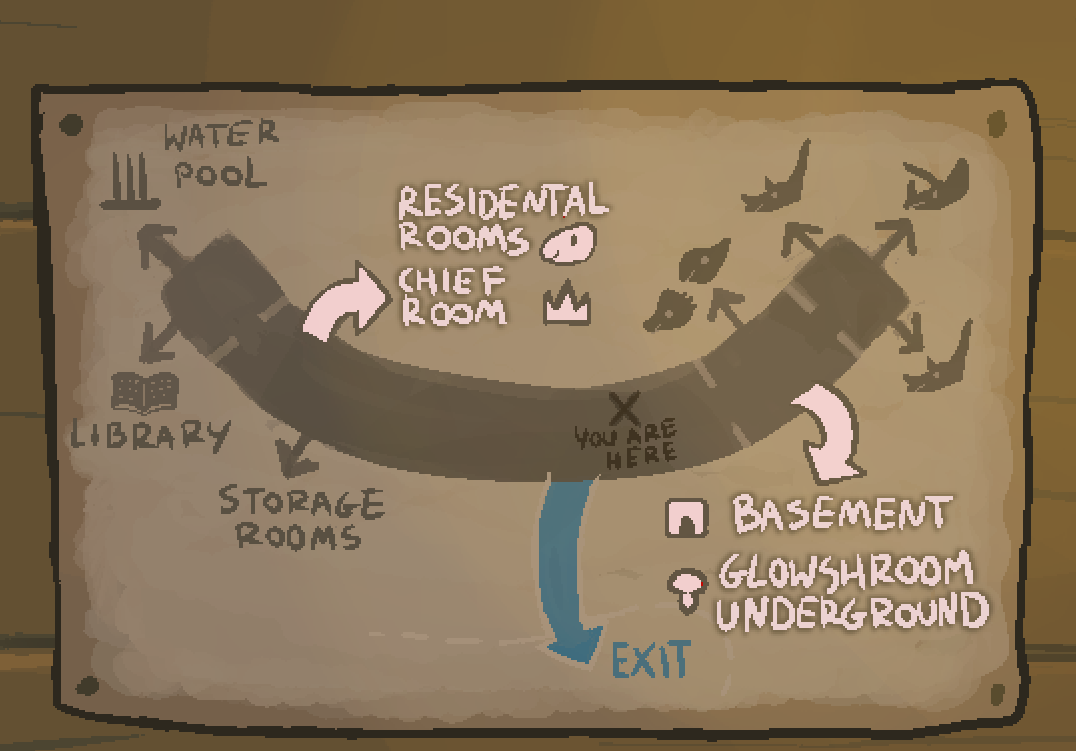 WATER
POOL
RESIDENTAL
ROOMS
CHIEF
ROOM
LIBRARY
STORAGE
ROOMS
X
YOU ARE
HERE
BASEMENT
GLOWSHROOM
UNDERGROUND
EXIT